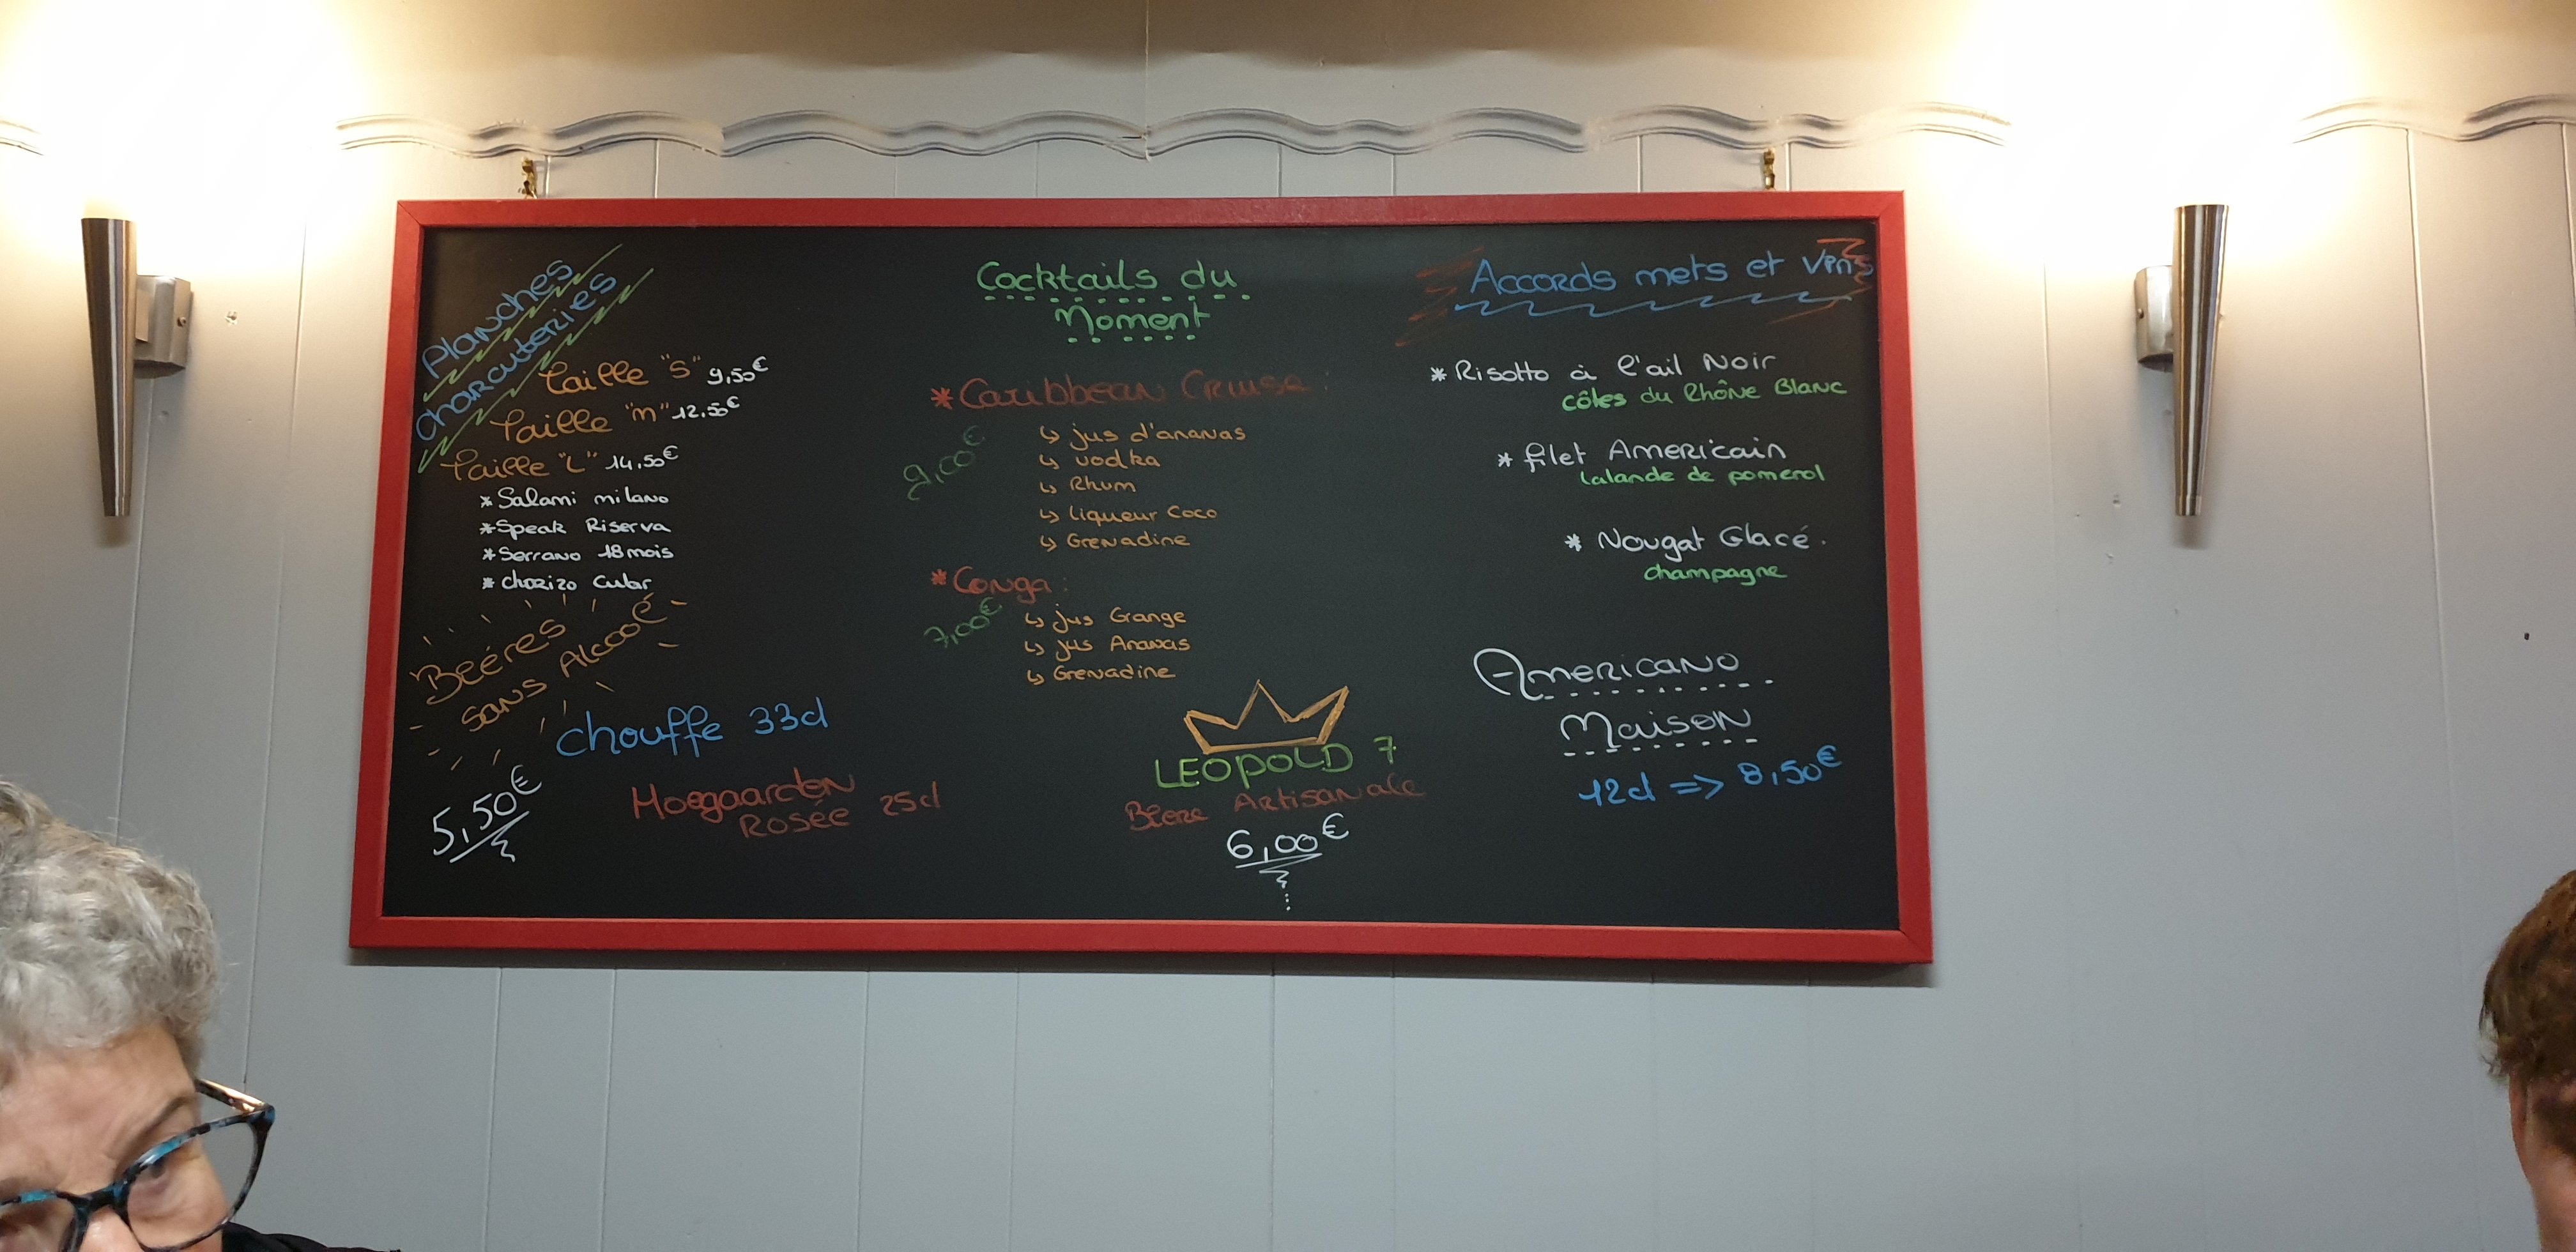 Planches
charcuteries
Taille "S" 9,50€
Taille "M" 12,50€
Taille "L" 14,50€
* Salami milano
* Speak Riserva
* Serrano 18 mois
* chorizo Cular
Bières
sans Alcool
chouffe 33cl
Hoegaarden
Rosée 25cl
5,50€
Cocktails du
Moment
* Caribbean Cruise :
9,00€
↳ jus d'ananas
↳ vodka
↳ Rhum
↳ liqueur Coco
↳ Grenadine
* Conga :
7,00€
↳ jus Orange
↳ jus Ananas
↳ Grenadine
LEOPOLD 7
Bière Artisanale
6,00€
Accords mets et vins
* Risotto à l'ail Noir
côtes du Rhône Blanc
* filet Americain
Lalande de pomerol
* Nougat Glacé.
champagne
Americano
Maison
12cl => 8,50€